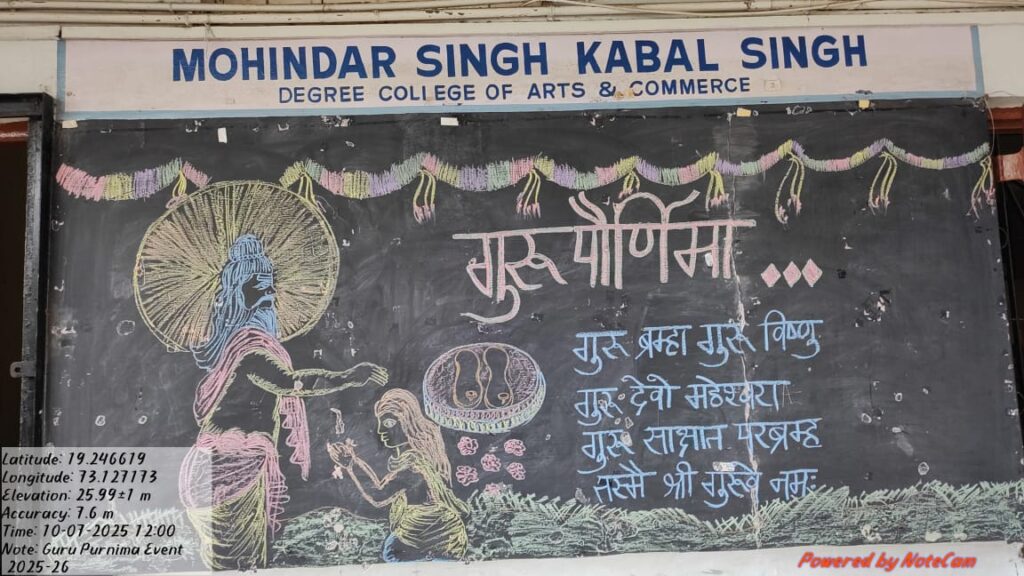 MOHINDAR SINGH KABAL SINGH
DEGREE COLLEGE OF ARTS & COMMERCE
गुरू पौर्णिमा...
गुरू ब्रम्हा गुरू विष्णु
गुरू देवो महेश्वरा
गुरू साक्षात परब्रम्ह
तस्मै श्री गुरूवे नमः
Latitude: 19.246619
Longitude: 73.127173
Elevation: 25.99±1 m
Accuracy: 7.6 m
Time: 10-07-2025 12:00
Note: Guru Purnima Event
2025-26
Powered by NoteCam